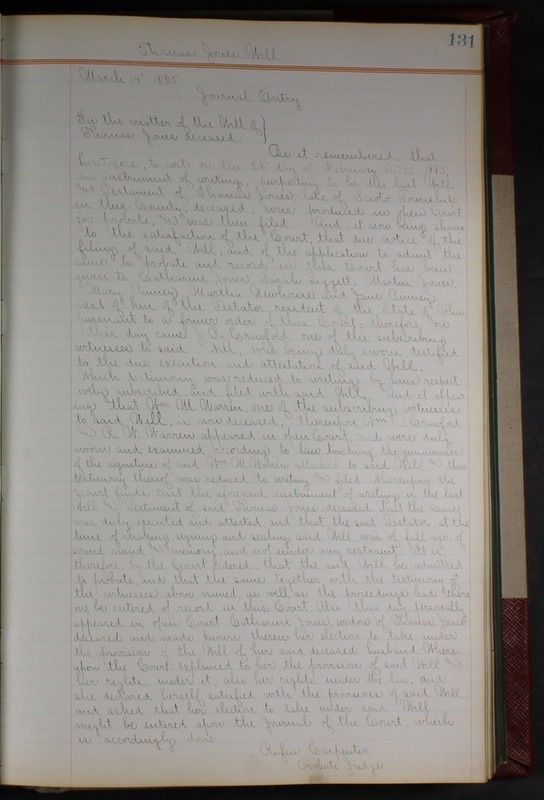 131
Thomas Jones Will
March 19" 1885
Journal Entry
In the matter of the Will of }
Thomas Jones Deceased. }
Be it remembered that
heretofore, to wit: on the day of February A.D. 1885,
an instrument of writing, purporting to be the last Will
and Testament of Thomas Jones, late of Scioto Township
in this County, deceased, was produced in open Court
for probate, and was then filed. And it now being shown
to the satisfaction of the Court, that due notice of the
filing of said Will, and of the application to admit the
same to probate and record in this Court has been
given to Catharine Jones, Sarah Liggett, Martin Jones,
Mary Pinney, Martha Newhouse and Jane Pinney
next of kin of the Testator, resident of the State of Ohio
pursuant to a former order of this Court, therefore on
this day came Crawford one of the subscribing
witnesses to said Will, who being duly sworn testified
to the due execution and attestation of said Will.
Which testimony was reduced to writing, by him respect
ively subscribed, and filed with said Will. And it appear
ing that Wm. M. Warren, one of the subscribing witnesses
to said Will, is now deceased, thereupon Crawford
and R. W. Warren appeared in open Court, and were duly
sworn and examined according to law touching the genuineness
of the signature of said Wm M. Warren attached to said Will and their
testimony thereof was reduced to writing and filed. Whereupon the
Court finds that the aforesaid instrument of writing is the last
Will and Testament of said Thomas Jones, deceased that the same
was duly executed and attested and that the said Testator, at the
time of making, signing and sealing said Will, was of full age, of
sound mind and memory, and not under any restraint. It is,
therefore, by the Court ordered, that the said Will be admitted
to probate, and that the same, together with the testimony of
the witnesses above named, as well as the proceedings had there
on, be entered of record in this Court. Also this day personally
appeared in open Court Catharine Jones, widow of Thomas Jones
deceased and made known therein her election to take under
the provision of the Will of her said deceased husband. Where
upon the Court explained to her the provision of said Will and
her rights under it, also her rights under the law, and
she declared herself satisfied with the provisions of said Will,
and asked that her election to take under said Will
might be entered upon the Journal of the Court, which
is accordingly done.
Rufus Carpenter
Probate Judge